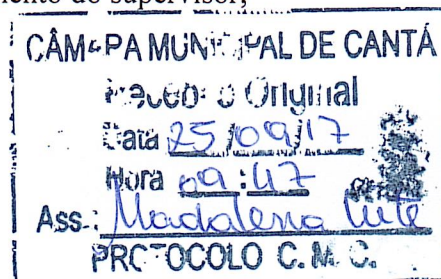 do supervisor,
CÂMARA MUNICIPAL DE CANTÁ
Recebi o Original
Data 25/09/17
Hora 09:47
Ass.: Madalena
PROTOCOLO C. M. C.